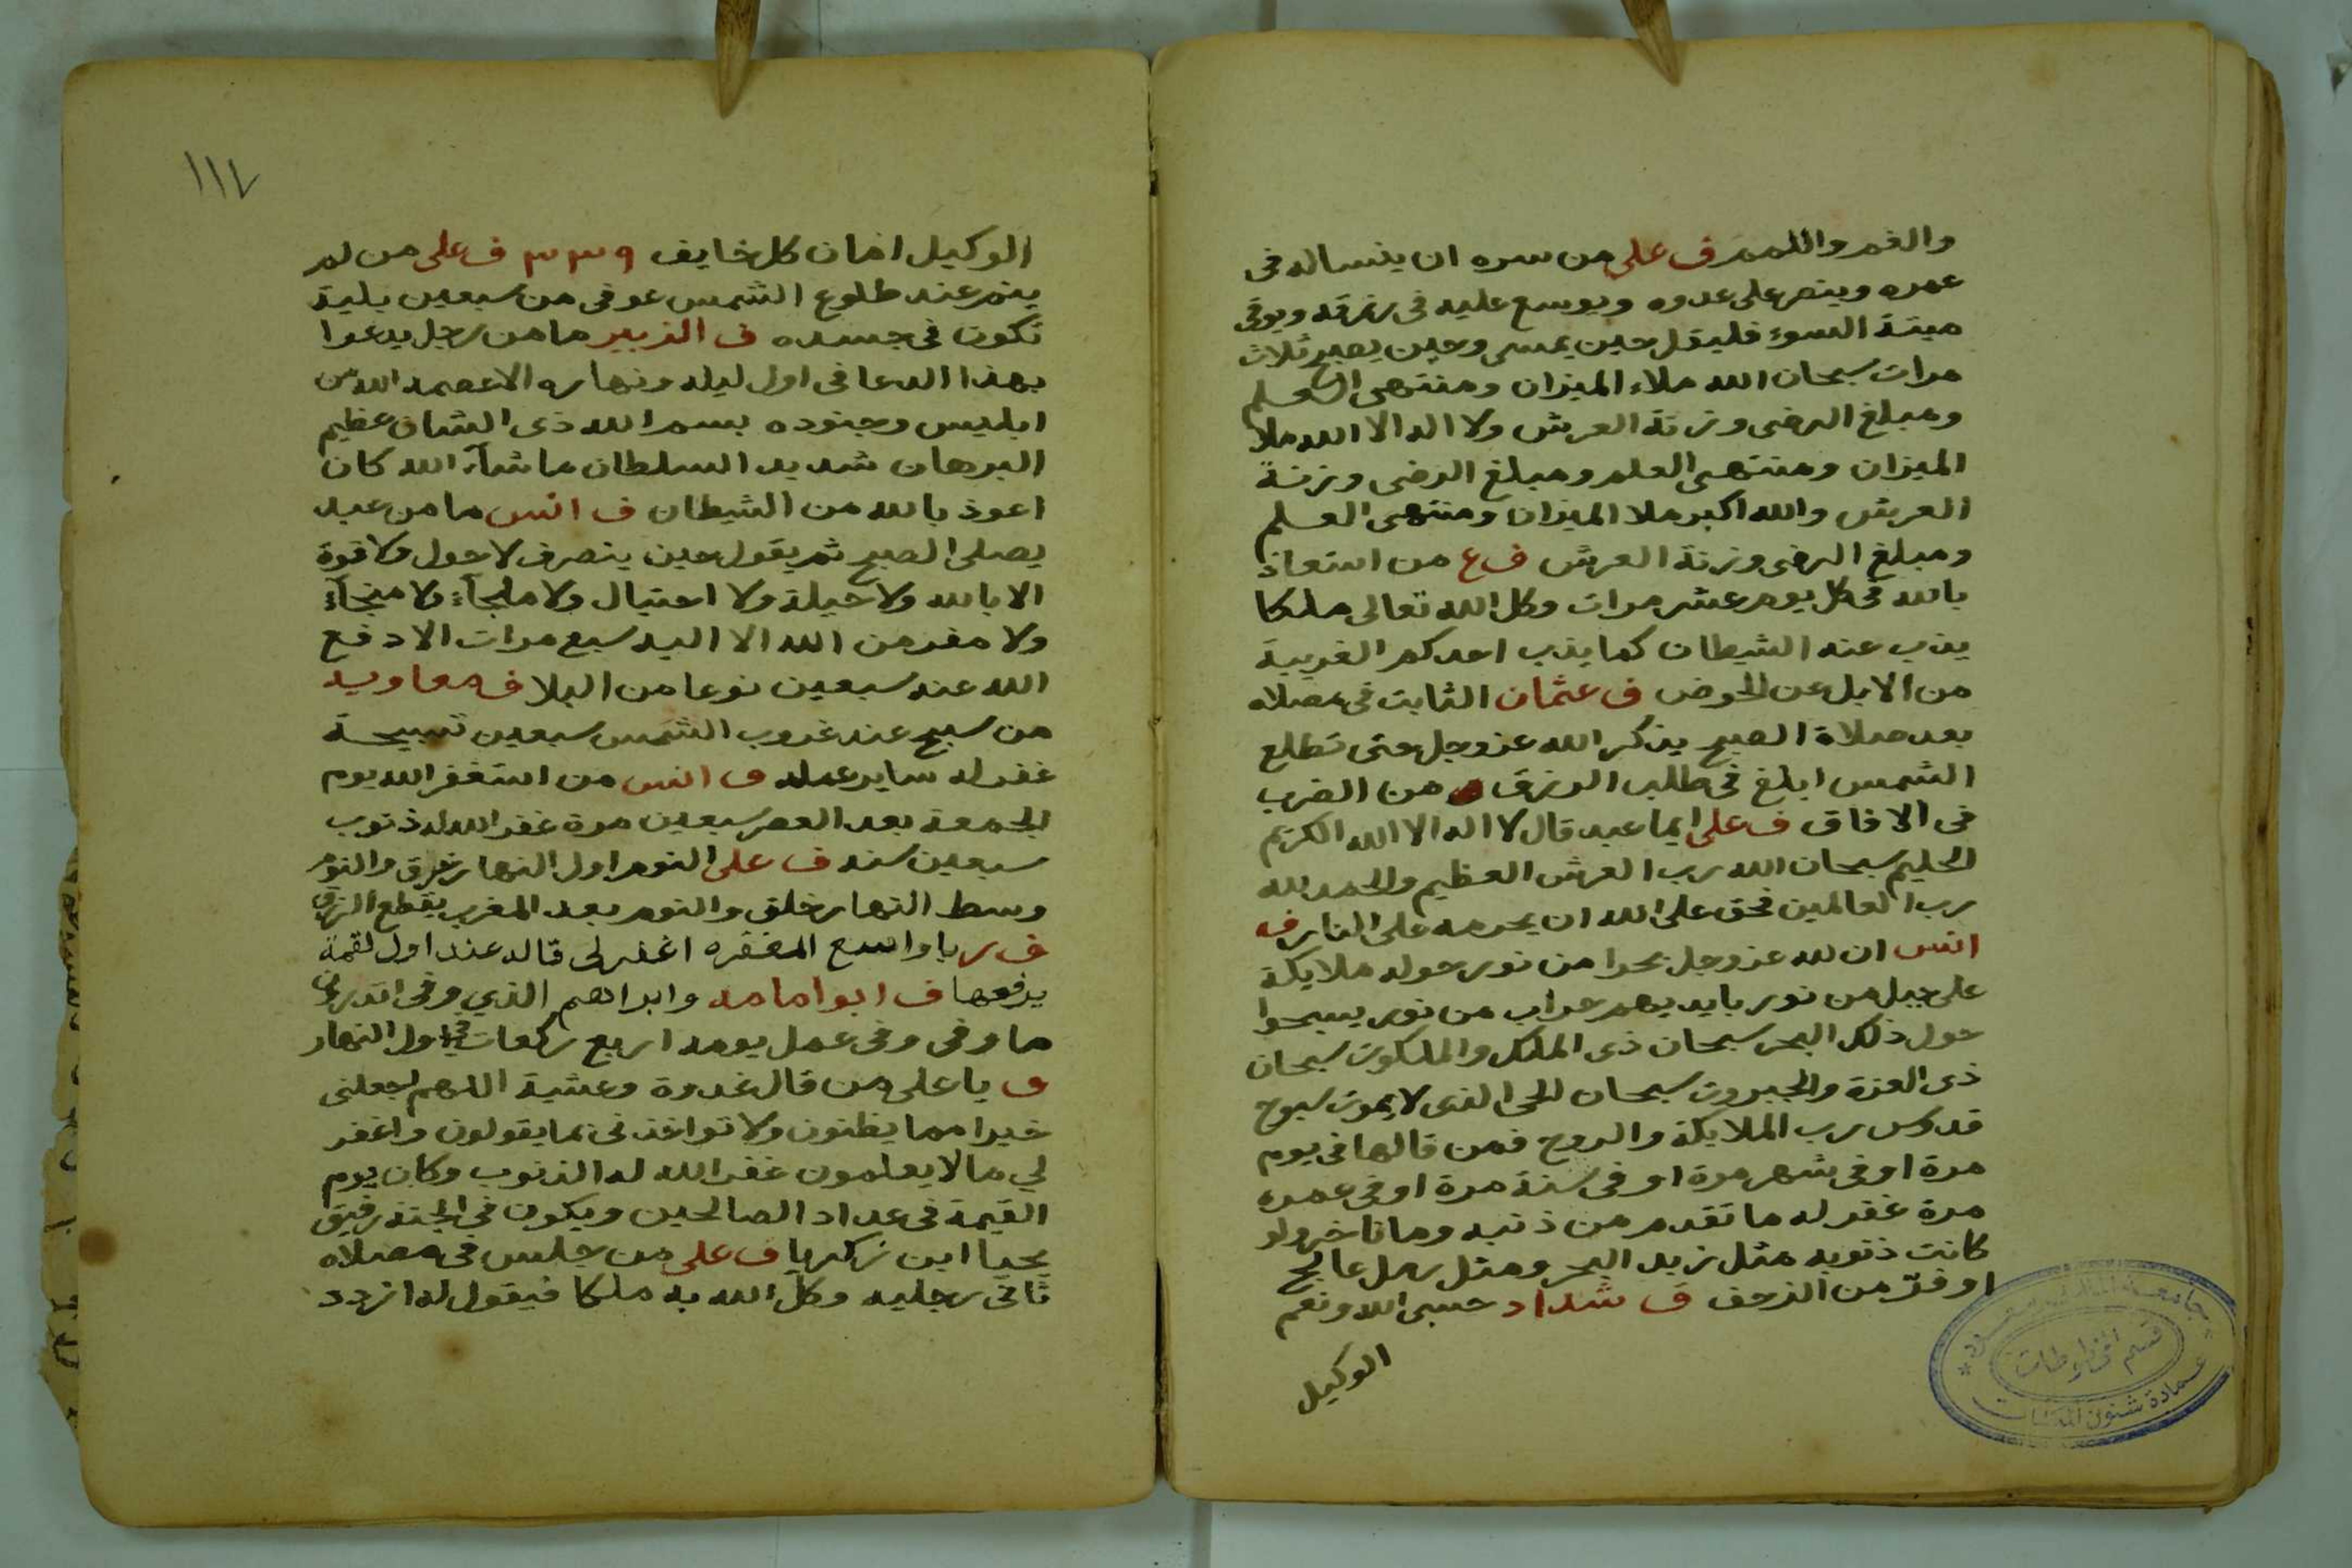 والغم واللمم ف علي من سره ان ينساله فى
عمره وينصر على عدوه ويوسع عليه فى رزقه ويوقى
ميتة السوء فليقل حين يمسى وحين يصبح ثلاث
مرات سبحان الله ملاء الميزان ومنتهى العلم
ومبلغ الرضى وزنة العرش ولا اله الا الله ملا
الميزان ومنتهى العلم ومبلغ الرضى وزنة
العرش والله اكبر ملا الميزان ومنتهى العلم
ومبلغ الرضى وزنة العرش ف ع من استعاذ
بالله فى كل يوم عشر مرات وكل الله تعالى ملكا
يذب عنه الشيطان كما يذب احدكم الغريبة
من الابل عن الحوض ف عثمان الثابت فى مصلاه
بعد صلاة الصبح يذكر الله عز وجل حتى تطلع
الشمس ابلغ فى طلب الرزق من الضرب
فى الافاق ف على ايما عبد قال لا اله الا الله الكريم
الحليم سبحان الله رب العرش العظيم والحمد لله
رب العالمين فحق على الله ان يحرمه على النار ف
انس ان لله عز وجل بحرا من نور حوله ملايكة
على جبل من نور بايديهم حراب من نور يسبحوا
حول ذلك البحر سبحان ذى الملك والملكوت سبحان
ذى العزة والجبروت سبحان الحى الذى لا يموت سبوح
قدوس رب الملايكة والروح فمن قالها فى يوم
مرة او فى شهر مرة او فى سنة مرة او فى عمره
مرة غفر له ما تقدم من ذنبه وما تاخر ولو
كانت ذنوبه مثل زبد البحر ومثل رمل عالج
او فر من الزحف ف شداد حسبى الله ونعم
الوكيل
جامعة الملك سعود
قسم المخطوطات
عمادة شئون المكتبات
١١٧
الوكيل امان كل خايف ف على من لم
ينم عند طلوع الشمس عوفى من سبعين بلية
تكون فى جسده ف الزبير ما من رجل يدعوا
بهذا الدعا فى اول ليله ونهاره الا عصمه الله من
ابليس وجنوده بسم الله ذى الشان عظيم
البرهان شديد السلطان ما شآء الله كان
اعوذ بالله من الشيطان ف انس ما من عبد
يصلى الصبح ثم يقول حين ينصرف لا حول ولا قوة
الا بالله ولا حيلة ولا احتيال ولا ملجآء ولا منجآء
ولا مفر من الله الا اليه سبع مرات الا دفع
الله عنه سبعين نوعا من البلا ف معاويه
من سبح عند غروب الشمس سبعين تسبيحة
غفر له ساير عمله ف انس من استغفر الله يوم
الجمعة بعد العصر سبعين مرة غفر الله له ذنوب
سبعين سنه ف على النوم اول النهار خرق والنوم
وسط النهار خلق والنوم بعد المغرب يقطع الرزق
ف ر يا واسع المغفره اغفر لى قاله عند اول لقمة
يرفعها ف ابو امامه وابراهيم الذي وفى اتدرون
ما وفى وفى عمل يومه اربع ركعات فى اول النهار
ف يا على من قال غدوة وعشية اللهم اجعلنى
خيرا مما يظنون ولا تواخذنى بما يقولون واغفر
لي ما لا يعلمون غفر الله له الذنوب وكان يوم
القيمة فى عداد الصالحين ويكون فى الجنة رفيق
يحيا ابن زكريا ف على من جلس فى مصلاه
ثانى رجليه وكل الله به ملكا فيقول له ازدد